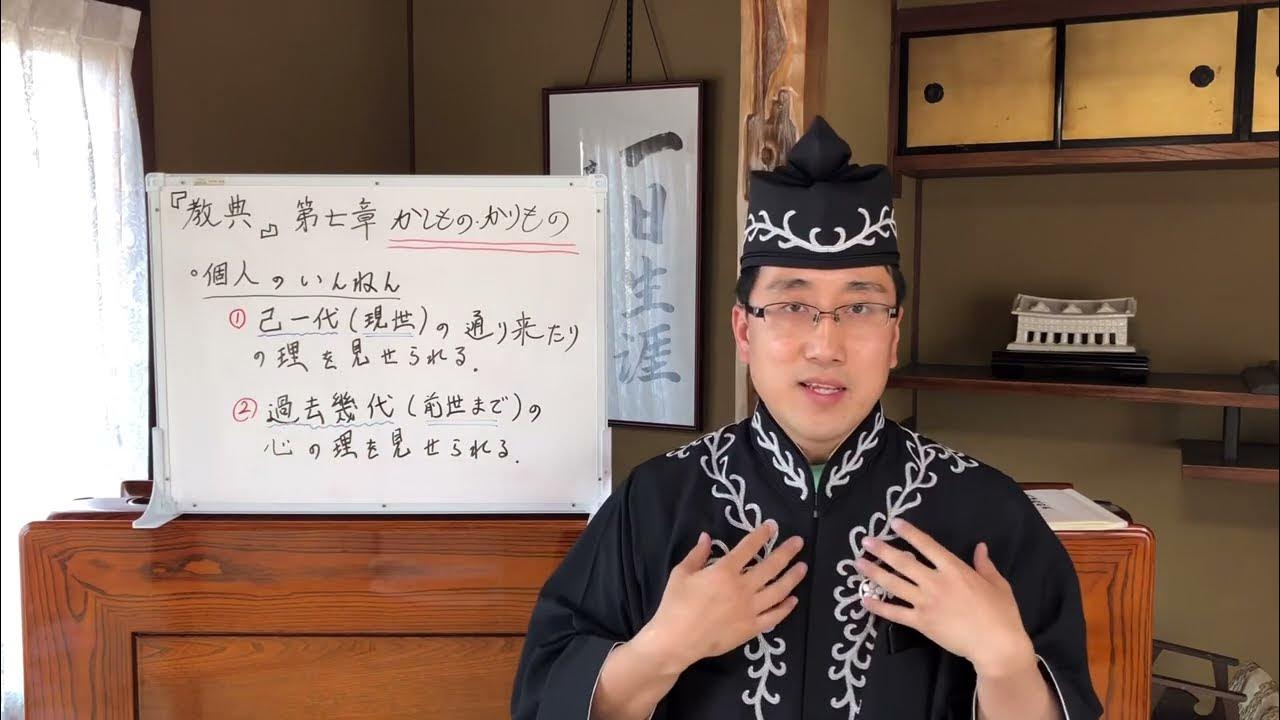 『教典』第七章 かしもの・かりもの
・個人のいんねん
① 己一代(現世)の通り来たり
の理を見せられる.
② 過去幾代(前世まで)の
心の理を見せられる.
一日生涯